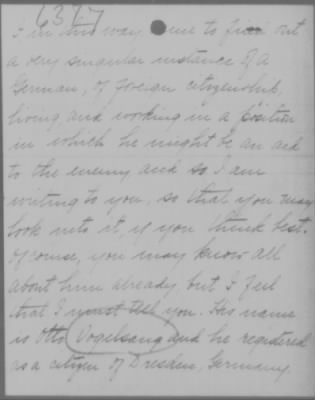 6377
I in this way come to find out
a very singular instance of a
German, of foreign citizenship,
living and working in a position
in which he might be an aid
to the enemy and so I am
writing to you, so that you may
look into it, if you think best.
Of course, you may know all
about him already but I feel
that I must tell you. His name
is Otto Vogelsang and he registered
as a citizen of Dresden, Germany